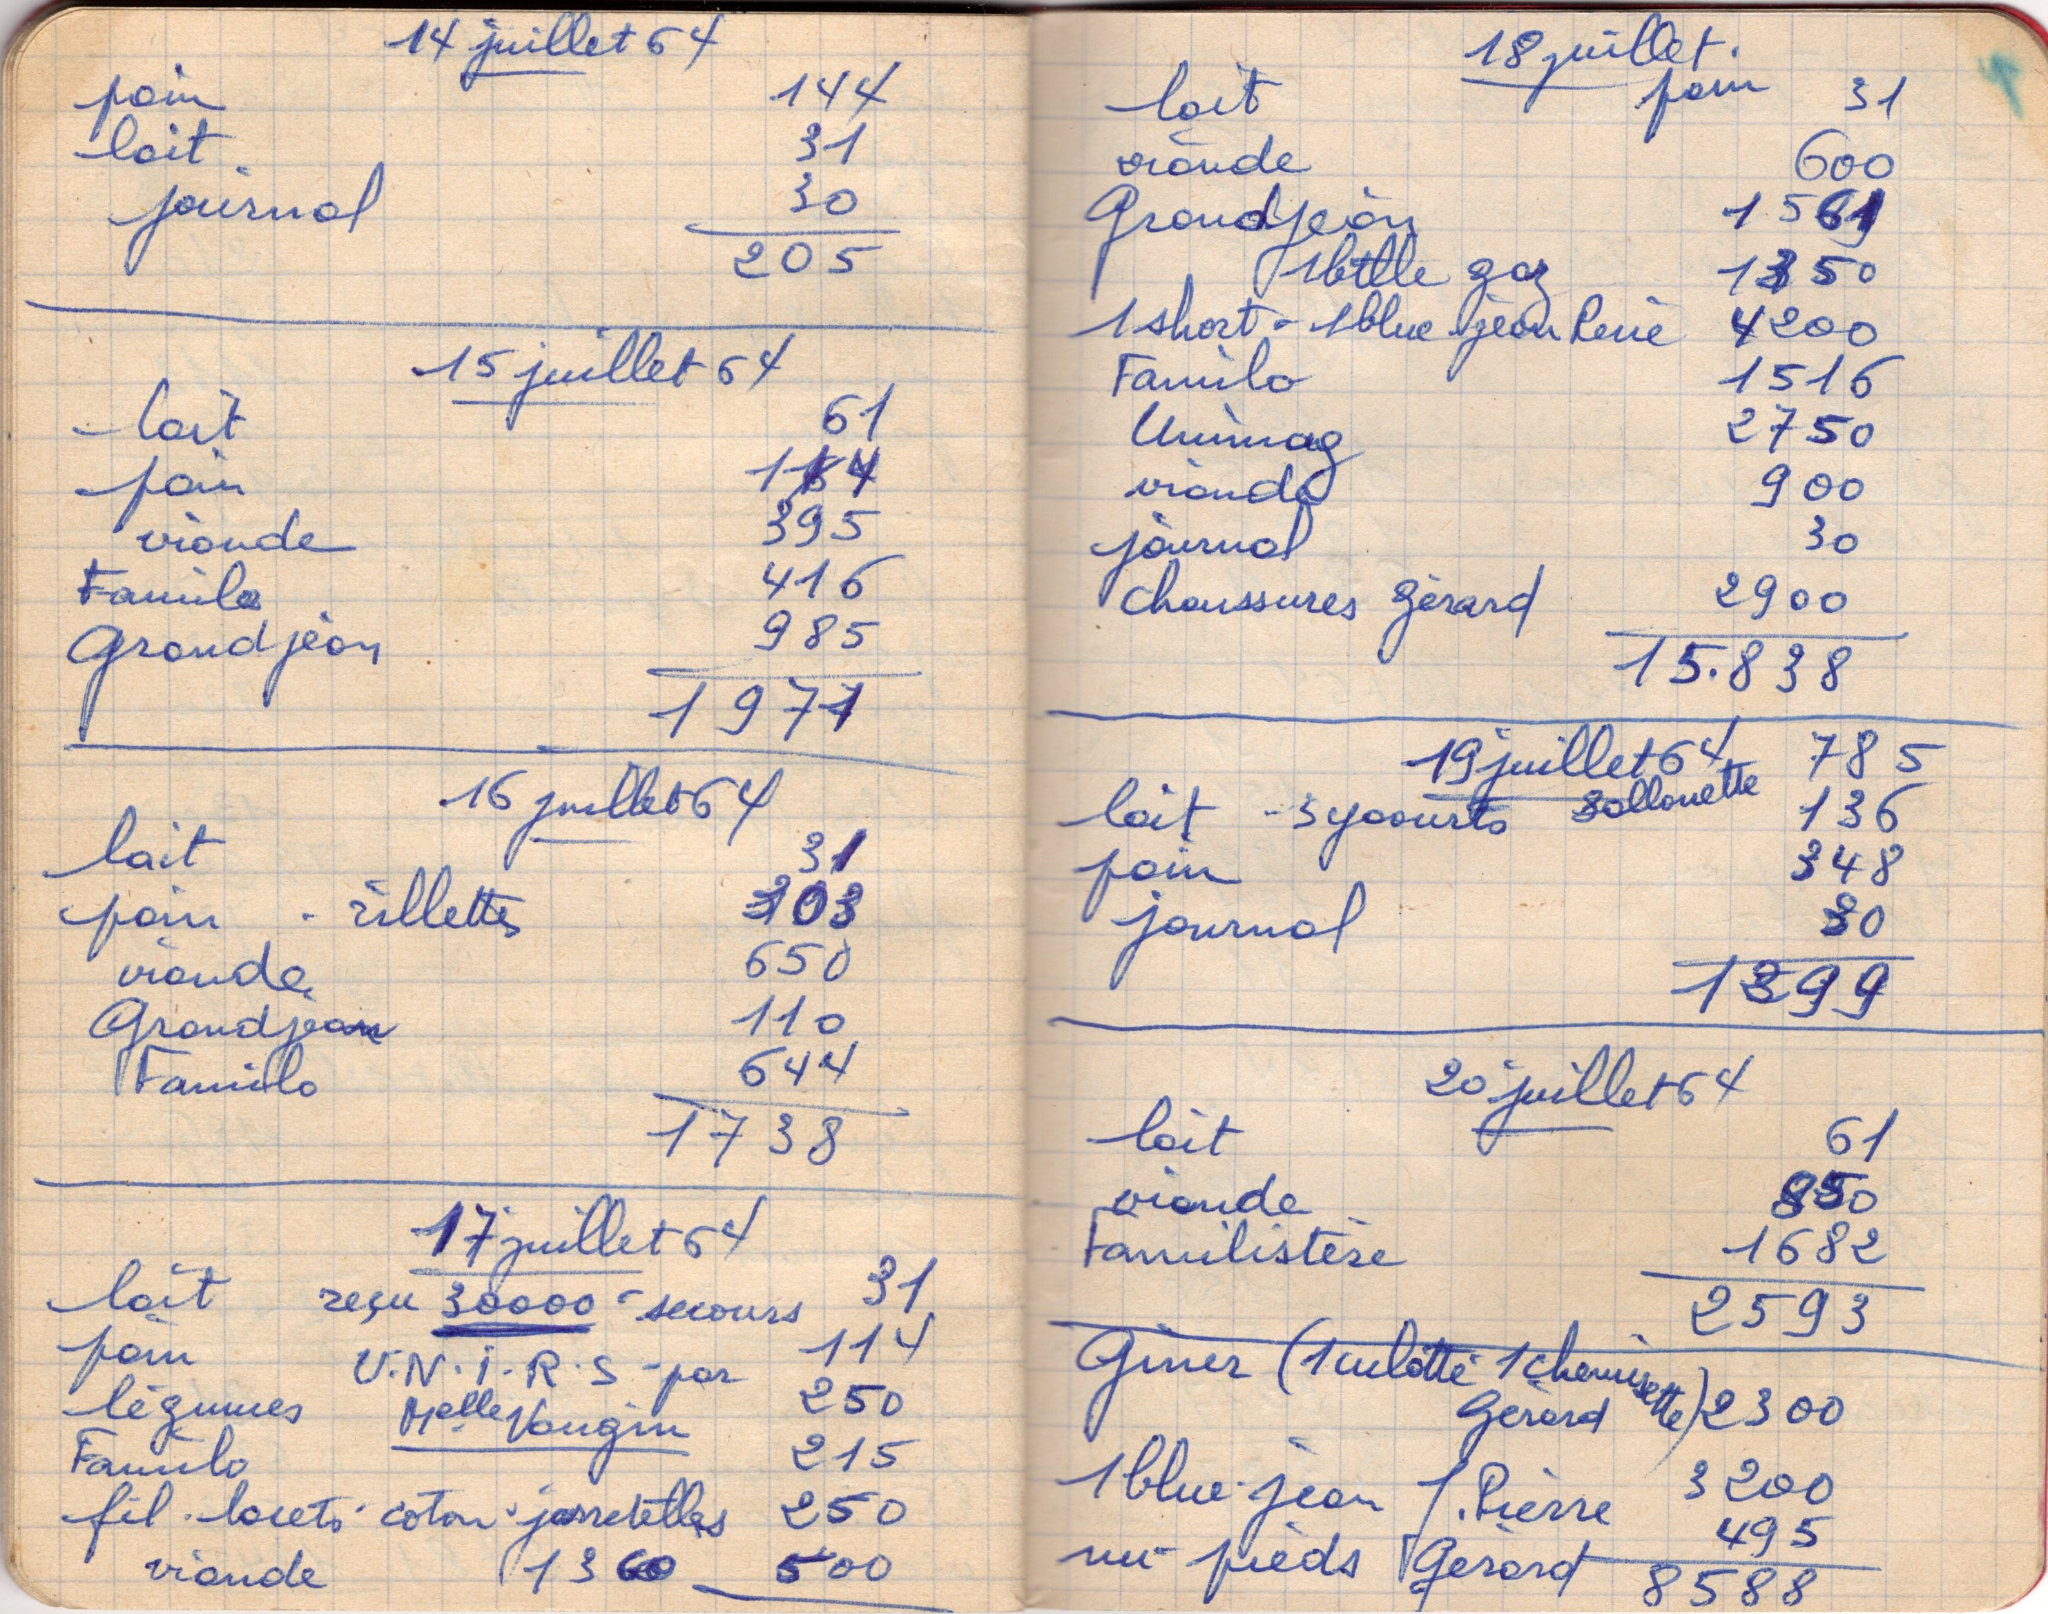 14 juillet 64
pain 144
lait 31
journal 30
205
15 juillet 64
lait 61
pain 114
viande 395
Familo 416
Grandjean 985
1971
16 juillet 64
lait 31
pain - rillettes 303
viande 650
Grandjean 110
Familo 644
1738
17 juillet 64
lait reçu 30000 - secours 31
pain U.N.I.R.S - par 114
légumes Melle Vaugin 250
Familo 215
fil - lacets - coton - jarretelles 250
viande 1360 500
18 juillet.
lait pain 31
viande 600
Grandjean 1561
1 btlle gaz 1350
1 short - 1 blue-jean René 4200
Familo 1516
Unimag 2750
viande 900
journal 30
chaussures Gérard 2900
15.838
19 juillet 64 785
lait - 3 yaourts Sallouette 136
pain 348
journal 30
1299
20 juillet 64
lait 61
viande 850
Familistère 1682
2593
Giner (1 culotte - 1 chemisette)
Gérard 2300
1 blue-jean J. Pierre 3200
nu-pieds Gérard 495
8588